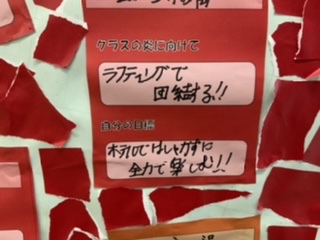 クラスの炎に向けて
ラフティングで
団結する!!
自分の目標
ホテルではしゃがずに
全力で楽しむ!!